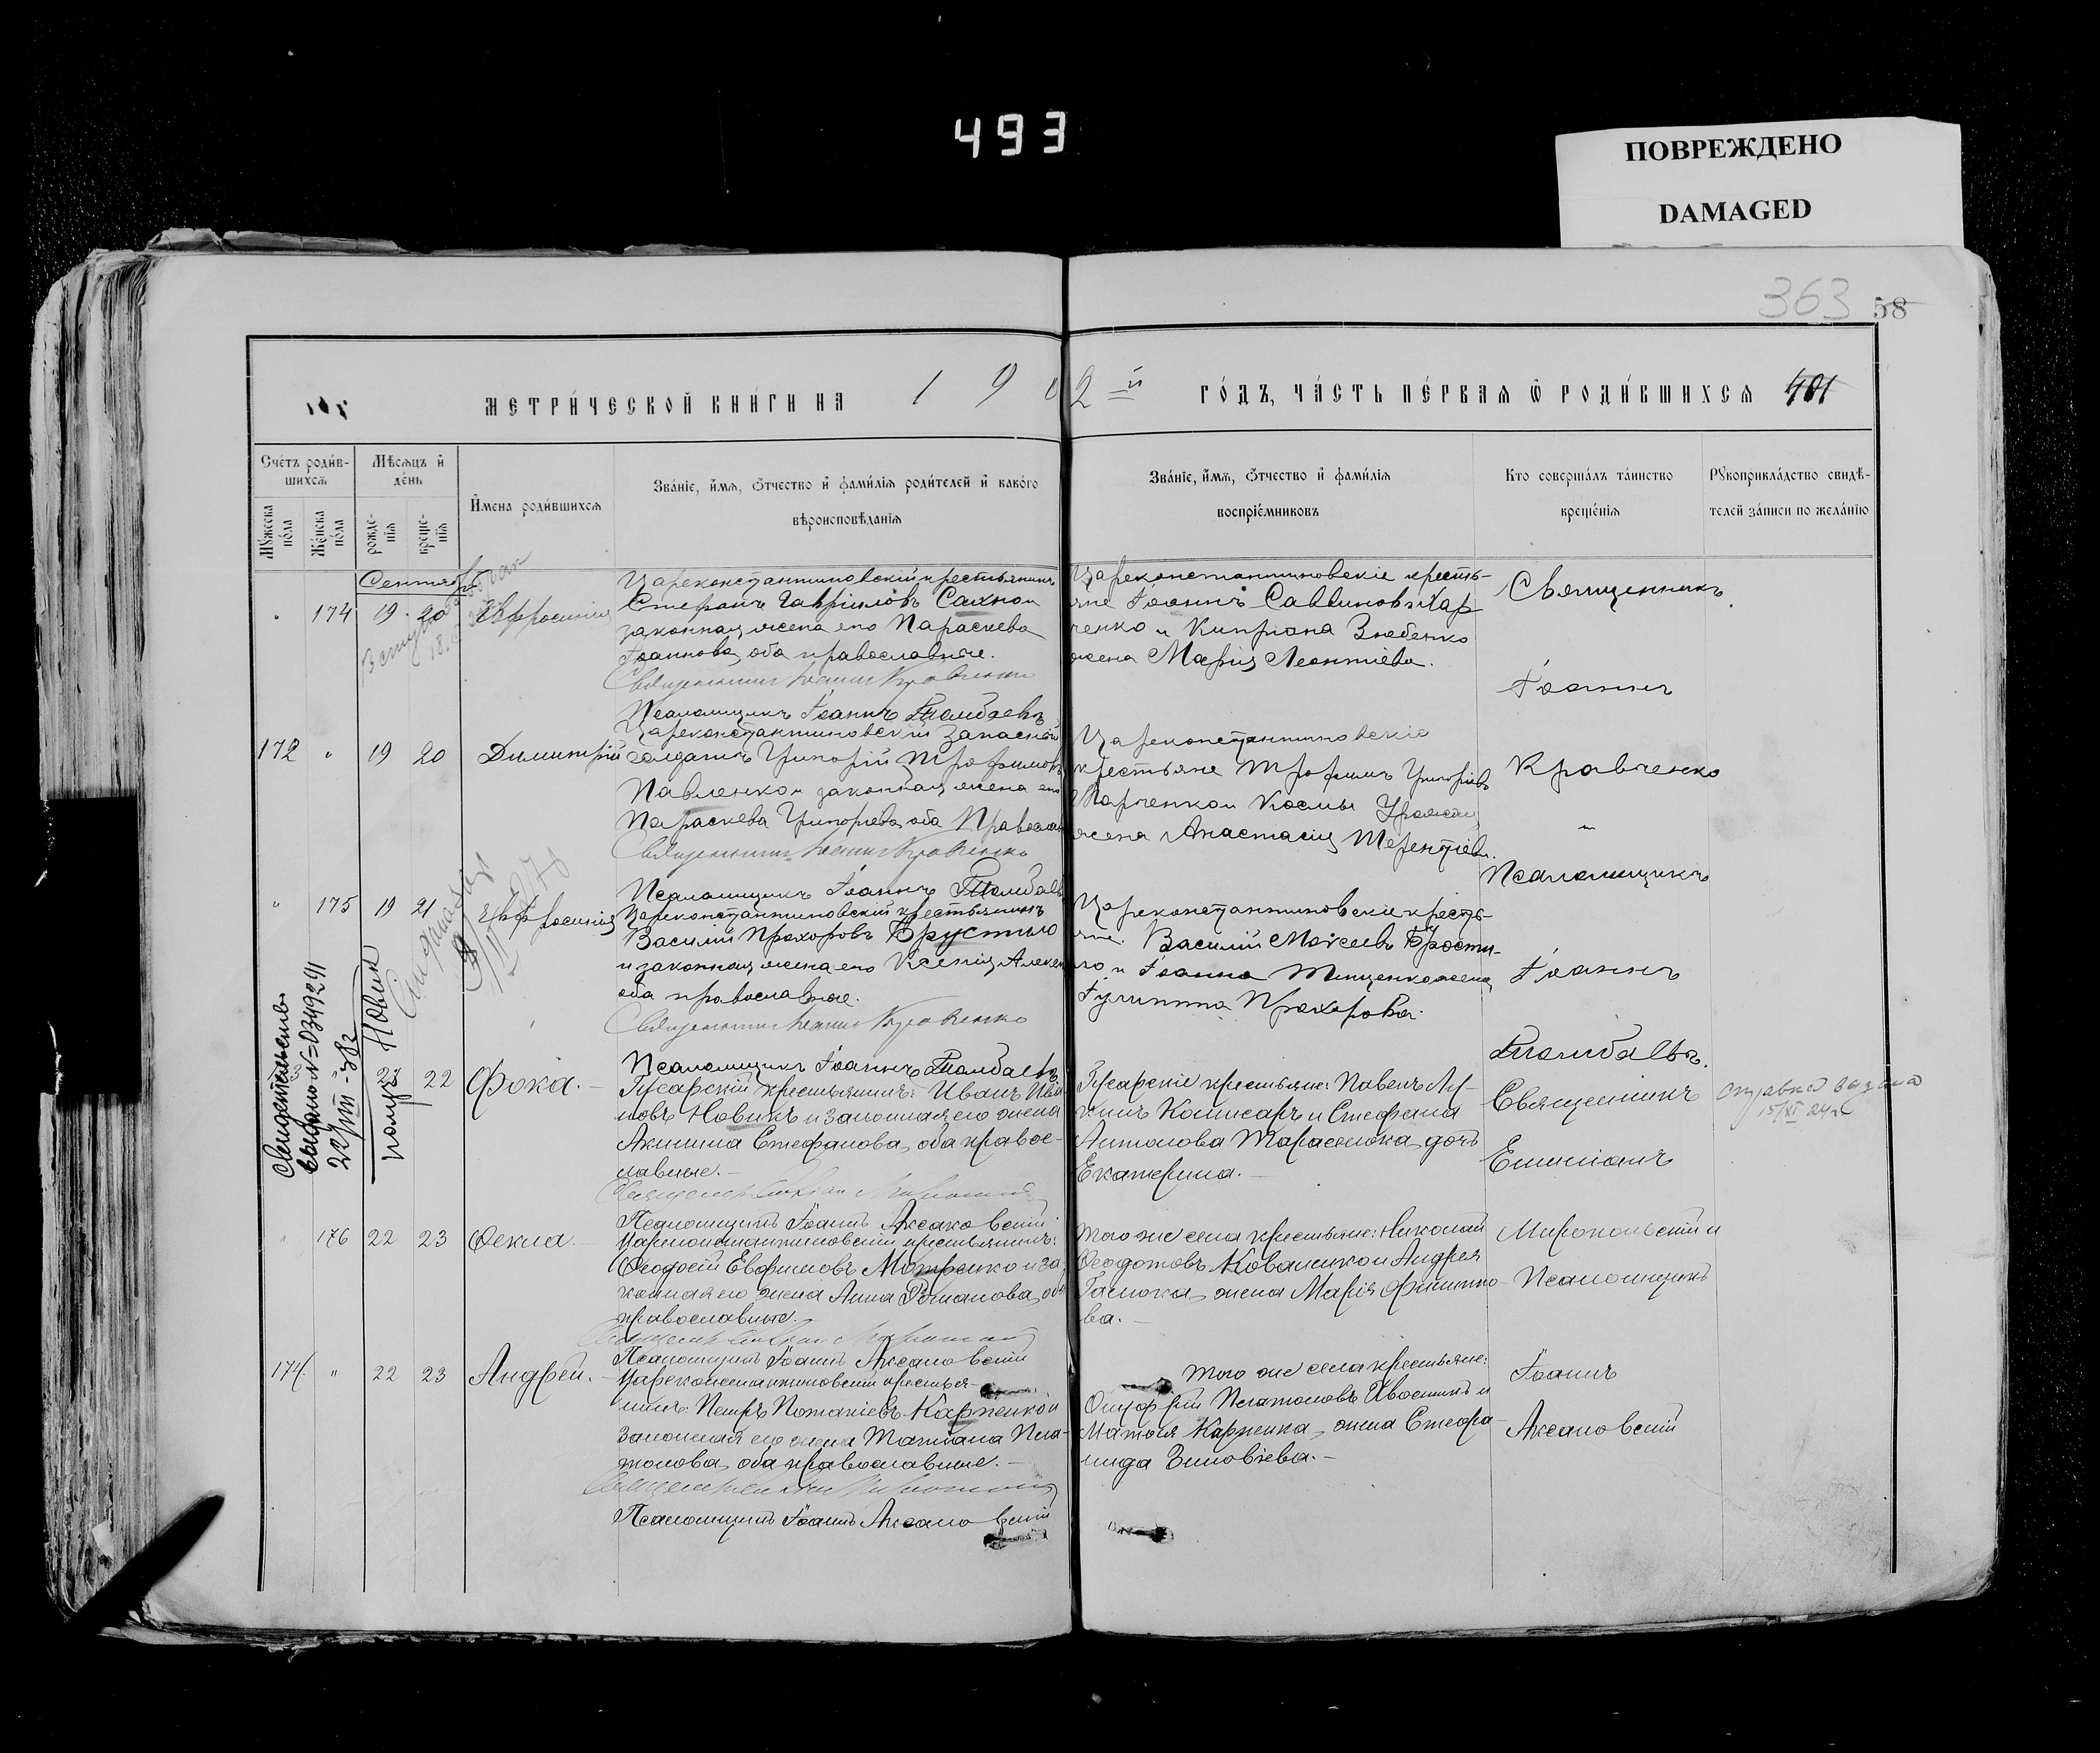 493
ПОВРЕЖДЕНО
DAMAGED
363 58
МЕТРИ́ЧЕСКОЙ КНИ́ГИ НА 1902й ГО́ДЪ, ЧА́СТЬ ПЕ́РВАЯ Ѡ҆ РОДИ́ВШИХСЯ 401
Сче́тъ роди́в-
шихся
Мꙋ́жеска по́ла
Же́нска по́ла
Мѣ́сяцъ и҆ де́нь
рожде-
нїя
креще-
нїя
И҆мена роди́вшихся
Зва́нїе, и҆́мя, ѻ҆́тчество и҆ фами́лїя роди́телей и҆ како́го
вѣроисповѣ́данїя
Зва́нїе, и҆́мя, ѻ҆́тчество и҆ фами́лїя
воспрїе́мниковъ
Кто соверша́лъ та́инство
креще́нїя
Рꙋкоприкла́дство свидѣ́-
телей за́писи по жела́нїю
Сентябрь
" 174 19 20 Евфросинія
Цареконстантиновскій крестьянинъ
Стефанъ Гавріиловъ Сахно и
законная жена его Параскева
Іоаннова, оба православные.
Священникъ Іоаннъ Кравченко
Псаломщикъ Іоаннъ
Цареконстантиновскіе кресть-
яне Іоаннъ Саввиновъ Хар
ченко и Кипріана Зюбенко
жена Марія Леонтіева.
Священникъ
Іоаннъ
172 " 19 20 Димитрій
Цареконстантиновскій запасной
солдатъ Григорій Трофимовъ
Павленко и законная жена его
Параскева Григорьева, оба Православ
Священникъ Іоаннъ Кравченко
Псаломщикъ Іоаннъ
Цареконстантиновскіе
крестьяне Трофимъ Григорьевъ
Марченко и Космы
жена Анастасія Терентіева.
Кравченко
и
Псаломщикъ
" 175 19 21 Евфросинія
Цареконстантиновскій крестьянинъ
Василій Прохоровъ Брустило
и законная жена его Ксенія Алекс
оба православные.
Священникъ Іоаннъ Кравченко
Псаломщикъ Іоаннъ
Цареконстантиновскіе кресть-
яне: Василій Моисеевъ Брусти-
ло и Іоанна Тищенко жена
Іулитта Прохорова.
Іоаннъ
Свидетельство
выдано N=0349291
22/III-38г
Новик
173 22 Фока.
Гусарскій крестьянинъ: Иванъ Ива
новъ Новикъ и законная его жена
Акилина Стефанова, оба правос-
лавные.
Псаломщикъ Іоаннъ Аксаковскій
Гусарскіе крестьяне: Павелъ
Комисаръ и Стефана
Антонова Тарасенка, дочь
Екатерина.
Священникъ
Емиліанъ
справка выдана
15/XI
" 176 22 23 Ѳекла.
Цареконстантиновскій крестьянинъ:
Ѳеодосій Евфимовъ Мотренко и за
конная его жена Анна Романова, оба
православные.
Псаломщикъ Іоаннъ Аксаковскій
Того же села крестьяне: Николай
Ѳеодотовъ Коваленко и Андрея
Галюка, жена Марія Филиппо-
ва.
Миропольскій и
Псаломщикъ
174. " 22 23 Андрей.
Цареконстантиновскій крестья-
нинъ: Петръ Потапіевъ Карпенко и
законная его жена Татіана Пла-
тонова, оба православные.
Псаломщикъ Іоаннъ Аксаковскій
Того же села крестьяне:
Онуфрій Платоновъ Ивосинъ и
Матѳія Карпенка, жена Стефа-
нида Зиновіева.
Іоаннъ
Аксаковскій